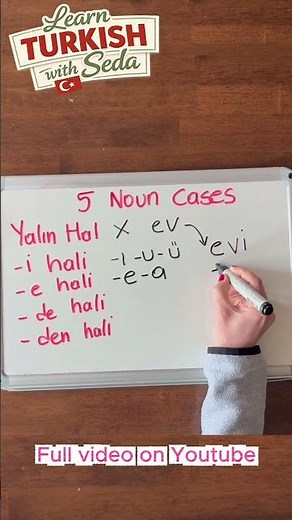 Learn
TURKISH
with Seda
5 Noun Cases
Yalın Hal X ev
evi
-i hali -ı -u -ü
-e hali -e -a
-de hali
-den hali
Full video on Youtube